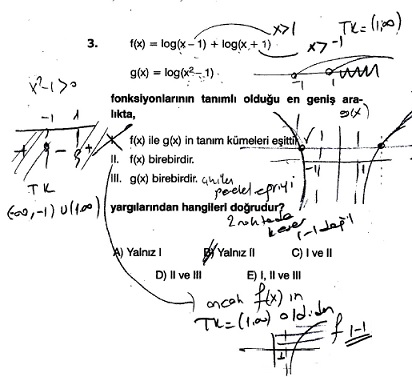 x>1
TK=(1,∞)
3. f(x) = log(x – 1) + log(x + 1)
x>-1
x²-1>0
g(x) = log(x² – 1)
fonksiyonlarının tanımlı olduğu en geniş ara-
lıkta,
g(x)
-1 1
+ - +
I. f(x) ile g(x) in tanım kümeleri eşittir.
II. f(x) birebirdir.
III. g(x) birebirdir. çünkü
TK
(-∞,-1) U (1,∞)
yargılarından hangileri doğrudur?
2 noktada
keser
1-1 değil
A) Yalnız I B) Yalnız II C) I ve II
D) II ve III E) I, II ve III
ancak f(x) in
TK=(1,∞) olduğundan
f 1-1
1